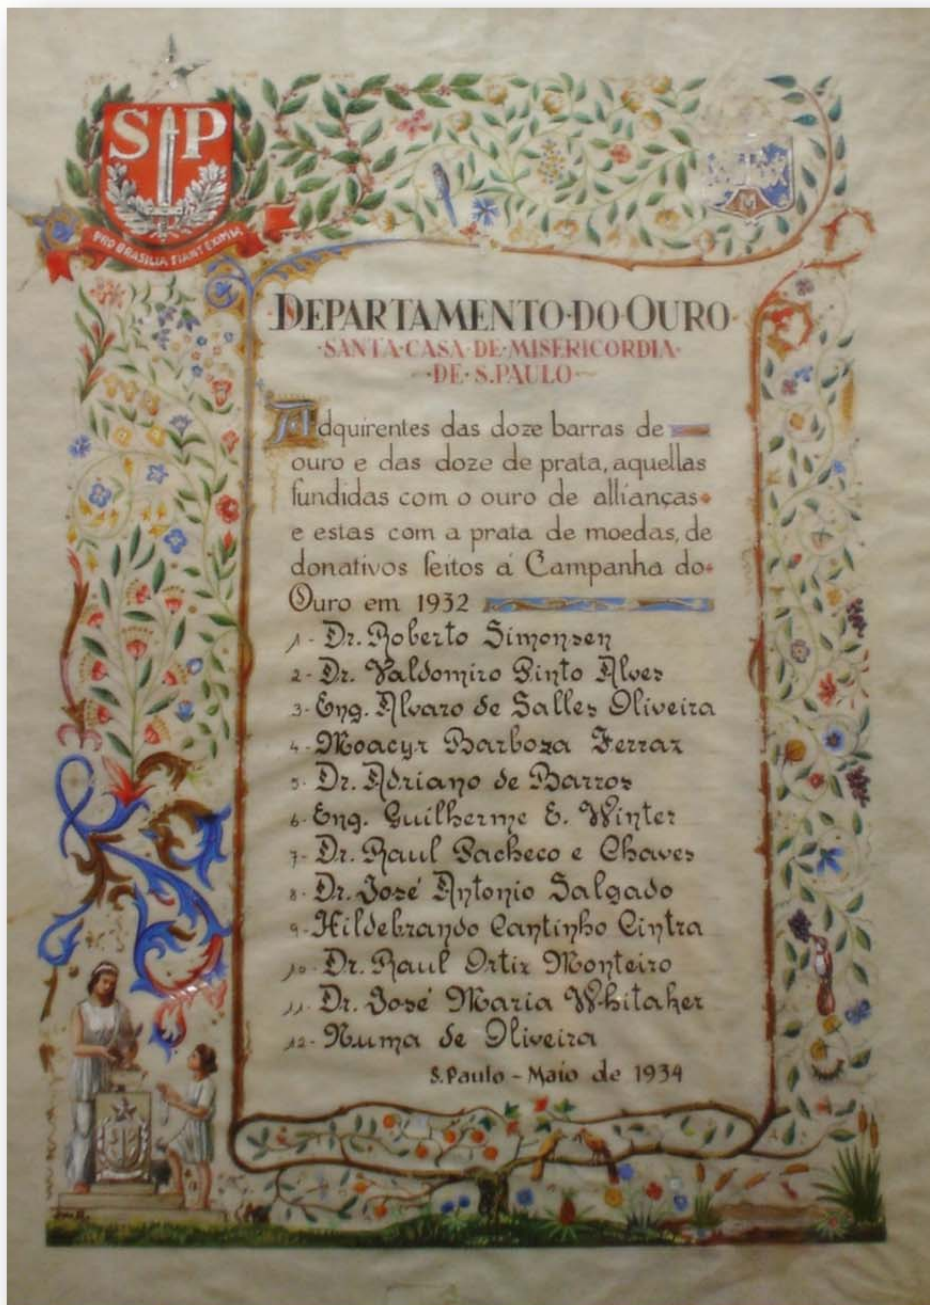 SP
PRO BRASILIA FIANT EXIMIA
DEPARTAMENTO·DO·OURO
·SANTA·CASA·DE·MISERICORDIA·
·DE·S.PAULO·
Adquirentes das doze barras de
ouro e das doze de prata, aquellas
fundidas com o ouro de allianças
e estas com a prata de moedas, de
donativos feitos á Campanha do
Ouro em 1932
1- Dr. Roberto Simonsen
2- Dr. Valdomiro Pinto Alves
3- Eng. Alvaro de Salles Oliveira
4- Moacyr Barboza Ferraz
5- Dr. Adriano de Barros
6- Eng. Guilherme E. Winter
7- Dr. Raul Pacheco e Chaves
8- Dr. José Antonio Salgado
9- Hildebrando Cantinho Cintra
10- Dr. Raul Ortiz Monteiro
11- Dr. José Maria Whitaker
12- Numa de Oliveira
S. Paulo - Maio de 1934